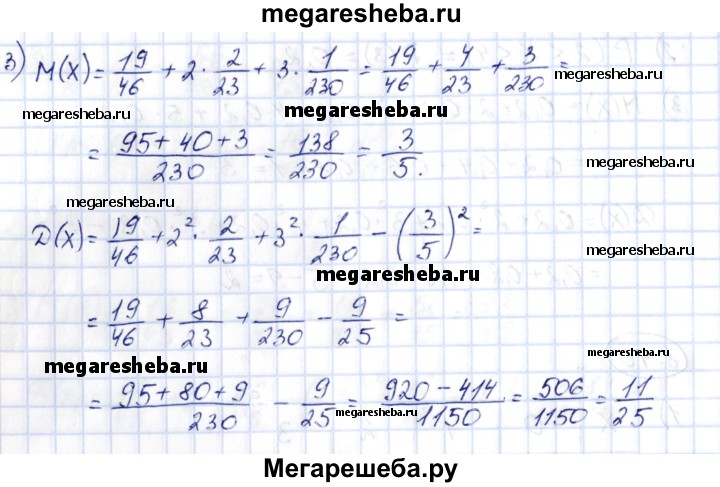 megaresheba.ru
3) M(X) = 19/46 + 2 · 2/23 + 3 · 1/230 = 19/46 + 4/23 + 3/230 =
megaresheba.ru
megaresheba.ru
= (95 + 40 + 3)/230 = 138/230 = 3/5.
megaresheba.ru
megaresheba.ru
D(X) = 19/46 + 2² · 2/23 + 3² · 1/230 − (3/5)² =
megaresheba.ru
megaresheba.ru
= 19/46 + 8/23 + 9/230 − 9/25 =
megaresheba.ru
megaresheba.ru
= (95 + 80 + 9)/230 − 9/25 = (920 − 414)/1150 = 506/1150 = 11/25
megaresheba.ru
megaresheba.ru
Мегарешеба.ру